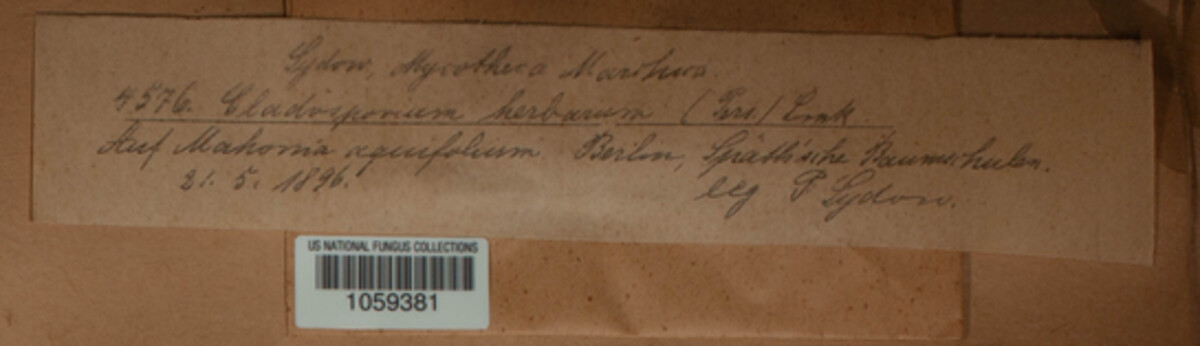 Sydow, Mycotheca Marchica.
4576. Cladosporium herbarum (Pers.) Link.
Auf Mahonia aquifolium. Berlin, Späth'sche Baumschulen.
21. 5. 1896. leg P. Sydow.
US NATIONAL FUNGUS COLLECTIONS
1059381